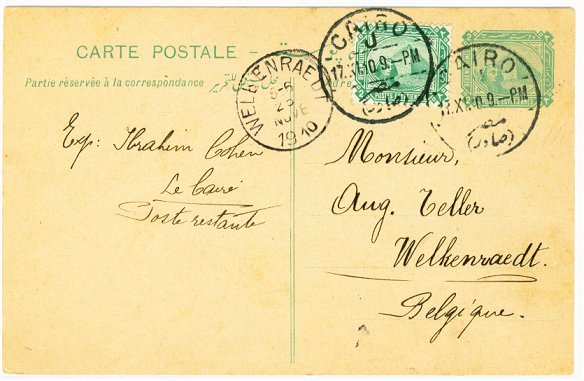 CARTE POSTALE
Partie réservée à la correspondance
WELKENRAEDT
5-6
25
NOVE
1910
CAIRO
J
17.XI.10.9.-PM
مصر
(صادر)
CAIRO
17.XI.10.9.-PM
مصر
(صادر)
Exp: Ibrahim Cohen
Le Caire
Poste restante
Monsieur,
Aug. Teller
Welkenraedt.
Belgique.